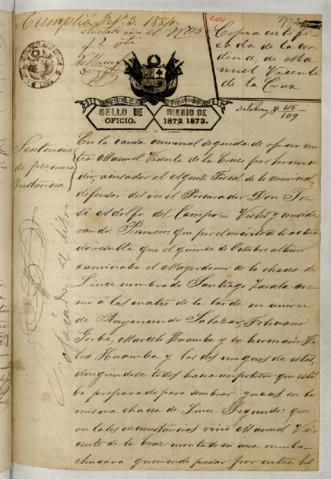 Cumplió Sep. 3. 1884.
Copia certifi
cada de la con
dena, de Ma
nuel Vicente
de la Cruz
SELLO DE OFICIO.
BIENIO DE 1872 1873.
Sentencia
de primera
Instancia
En la causa criminal seguida de oficio con
tra Manuel Vicente de la Cruz por homici
dio, acusador el Agente Fiscal de lo criminal,
defensor del reo el Procurador Don Jo
sé Adolfo del Campo. Vistos y conside
rando Primero: que por el mérito de lo actua
do resulta que el quince de Octubre ultimo
caminaba el Mayordomo de la chacra de
Lince nombrado Santiago Zavala co
mo á las cuatro de la tarde en union
de Raymundo Salazar, Feliciano
Marcelo Huamba y su hermano
y las dos mugeres de estos,
dirigiendose todos hacia un potrero que esta
ba preparado para sembrar yucas en
la misma chacra de Lince. Segundo: que
en tales circunstancias vino Manuel Vi
cente de la Cruz montado en una mula
chúcara queriendo pasar por entre los